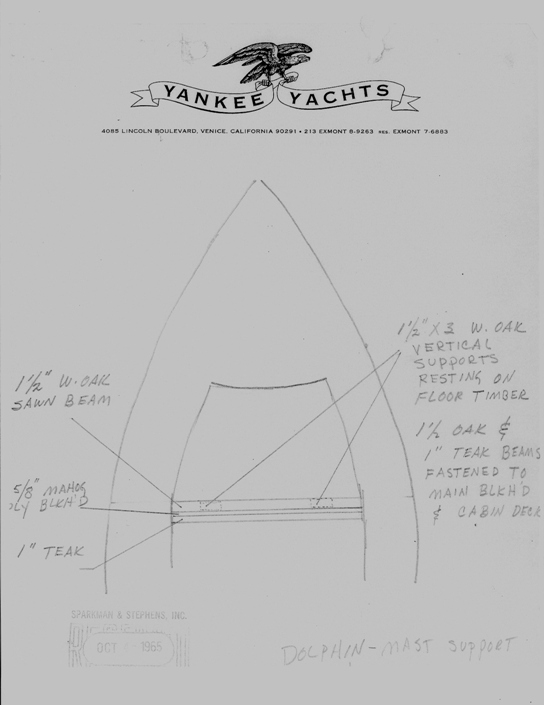 YANKEE YACHTS
4085 LINCOLN BOULEVARD, VENICE, CALIFORNIA 90291 • 213 EXMONT 8-9263 RES. EXMONT 7-6883
1½" X 3 W. OAK
VERTICAL
SUPPORTS
RESTING ON
FLOOR TIMBER
1½" W. OAK
SAWN BEAM
1½ OAK &
1" TEAK BEAMS
FASTENED TO
MAIN BLKH'D
& CABIN DECK
5/8" MAHOG
PLY BLKH'D
1" TEAK
SPARKMAN & STEPHENS, INC.
OCT 1965
DOLPHIN - MAST SUPPORT